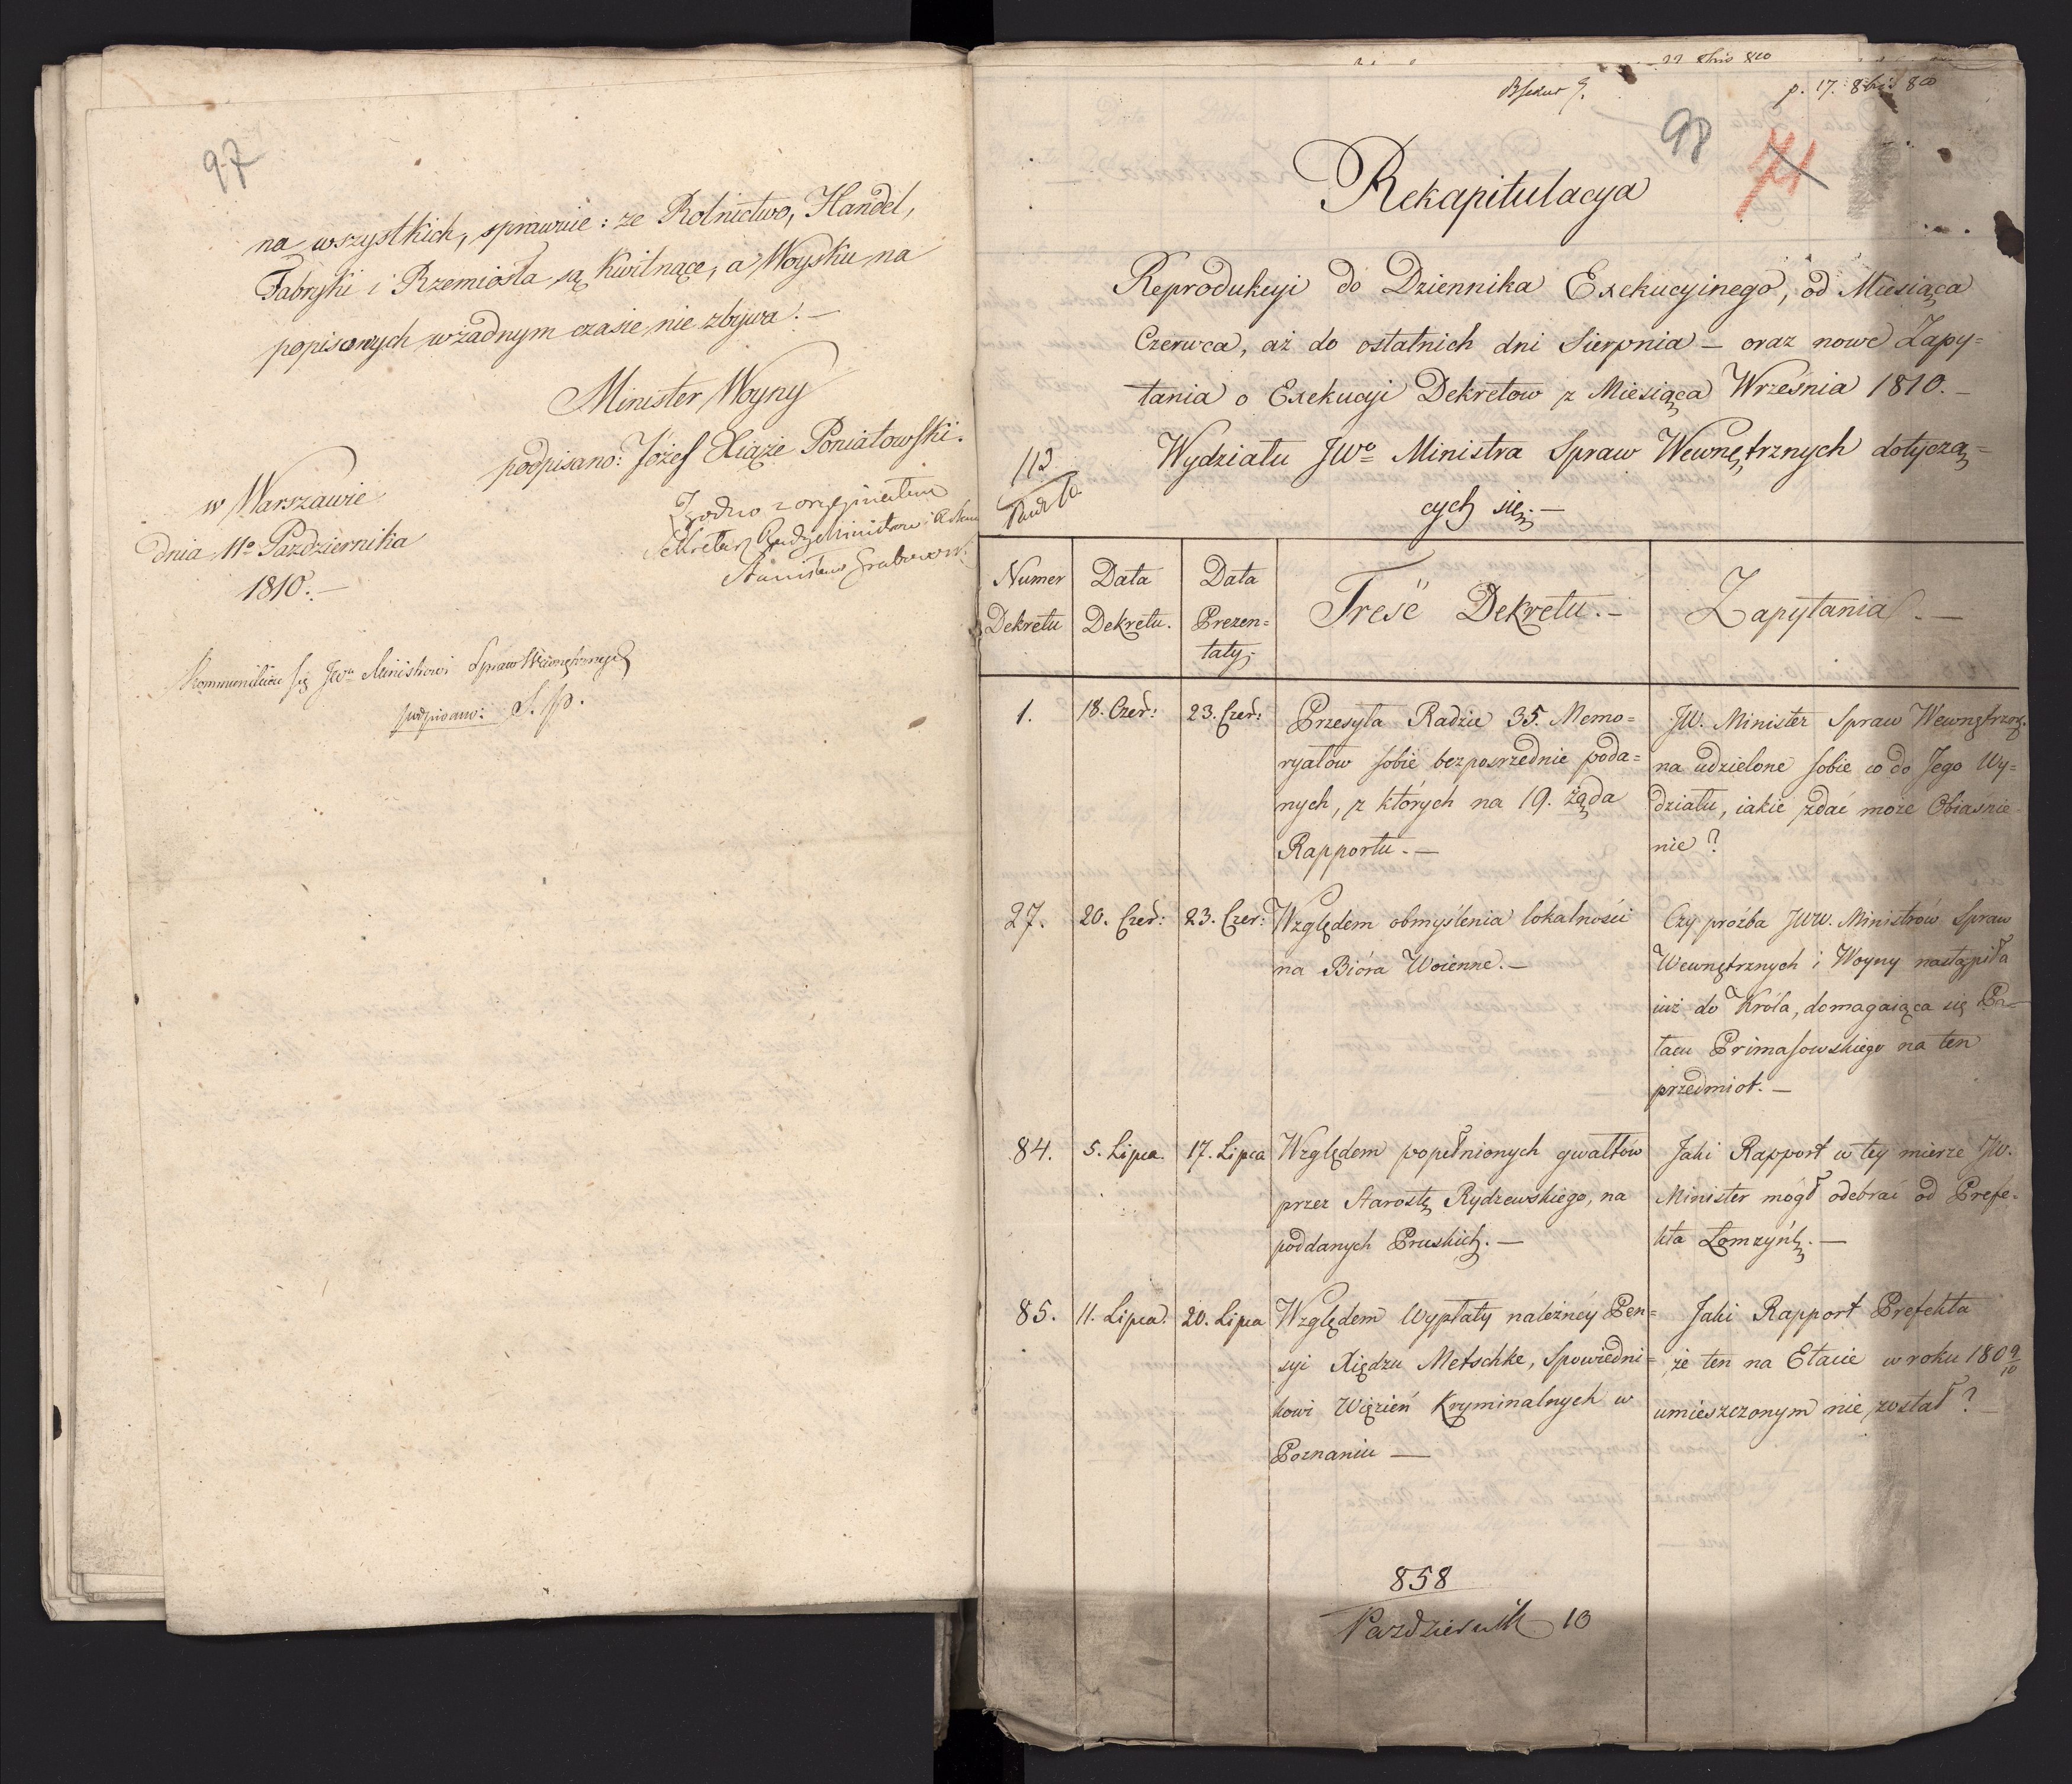 97
na wszystkich, sprawuie: ze Rolnictwo, Handel,
Fabryki i Rzemiosła są kwitnące, a Woysku na
popisowych w żadnym czasie nie zbywa. —
Minister Woyny
podpisano: Józef Xiąże Poniatowski.
w Warszawie
dnia 11º Pazdziernika
1810. —
Zgodno z oryginałem
Sekretarz Rady Ministrów
Stanisław Grabowski
Kommunikuie się JWu Ministrowi Spraw Wewnętrznych
podpisano: S. P.
p. 17. 8bris 810
98
Rekapitulacya
Reprodukcyi do Dziennika Exekucyinego, od Miesiąca
Czerwca, aż do ostatnich dni Sierpnia — oraz nowe Zapy=
tania o Exekucyi Dekretow z Miesiąca Wrzesnia 1810. —
Wydziału JWo Ministra Spraw Wewnętrznych dotyczą=
cych się. —
112
Numer Dekretu | Data Dekretu. | Data Prezen=taty. | Treść Dekretu. — | Zapytania. —
1. | 18. Czer: | 23. Czer: | Przesyła Radzie 35. Memo=
ryałow sobie bezposrzednie poda=
nych, z których na 19. żąda
Rapportu. —
JW. Minister Spraw Wewnętrzng.
na udzielone sobie co do Jego Wy=
działu, iakie zdać może Obiaśnie=
nie?
27. | 20. Czer: | 23. Czer: | Względem obmyślenia lokalności
na Bióra Woienne. —
Czy proźba JWW. Ministrów Spraw
Wewnętrznych i Woyny nastąpiła
iuż do Króla, domagaiąca się Pa=
łacu Primasowskiego na ten
przedmiot. —
84. | 5. Lipca. | 17. Lipca | Względem popełnionych gwałtów
przez Starostę Rydzewskiego, na
poddanych Pruskich. —
Jaki Rapport w tey mierze JW.
Minister mógł odebrać od Prefe=
kta Łomzyń. —
85. | 11. Lipca. | 20. Lipca | Względem Wypłaty należnéy Pen=
syi Xiędzu Metschke, Spowiedni=
kowi Więzień Kryminalnych w
Poznaniu —
Jaki Rapport Prefekta
że ten na Etacie w roku 1809/10
umieszczonym nie został?
858
Pazdziernik 10